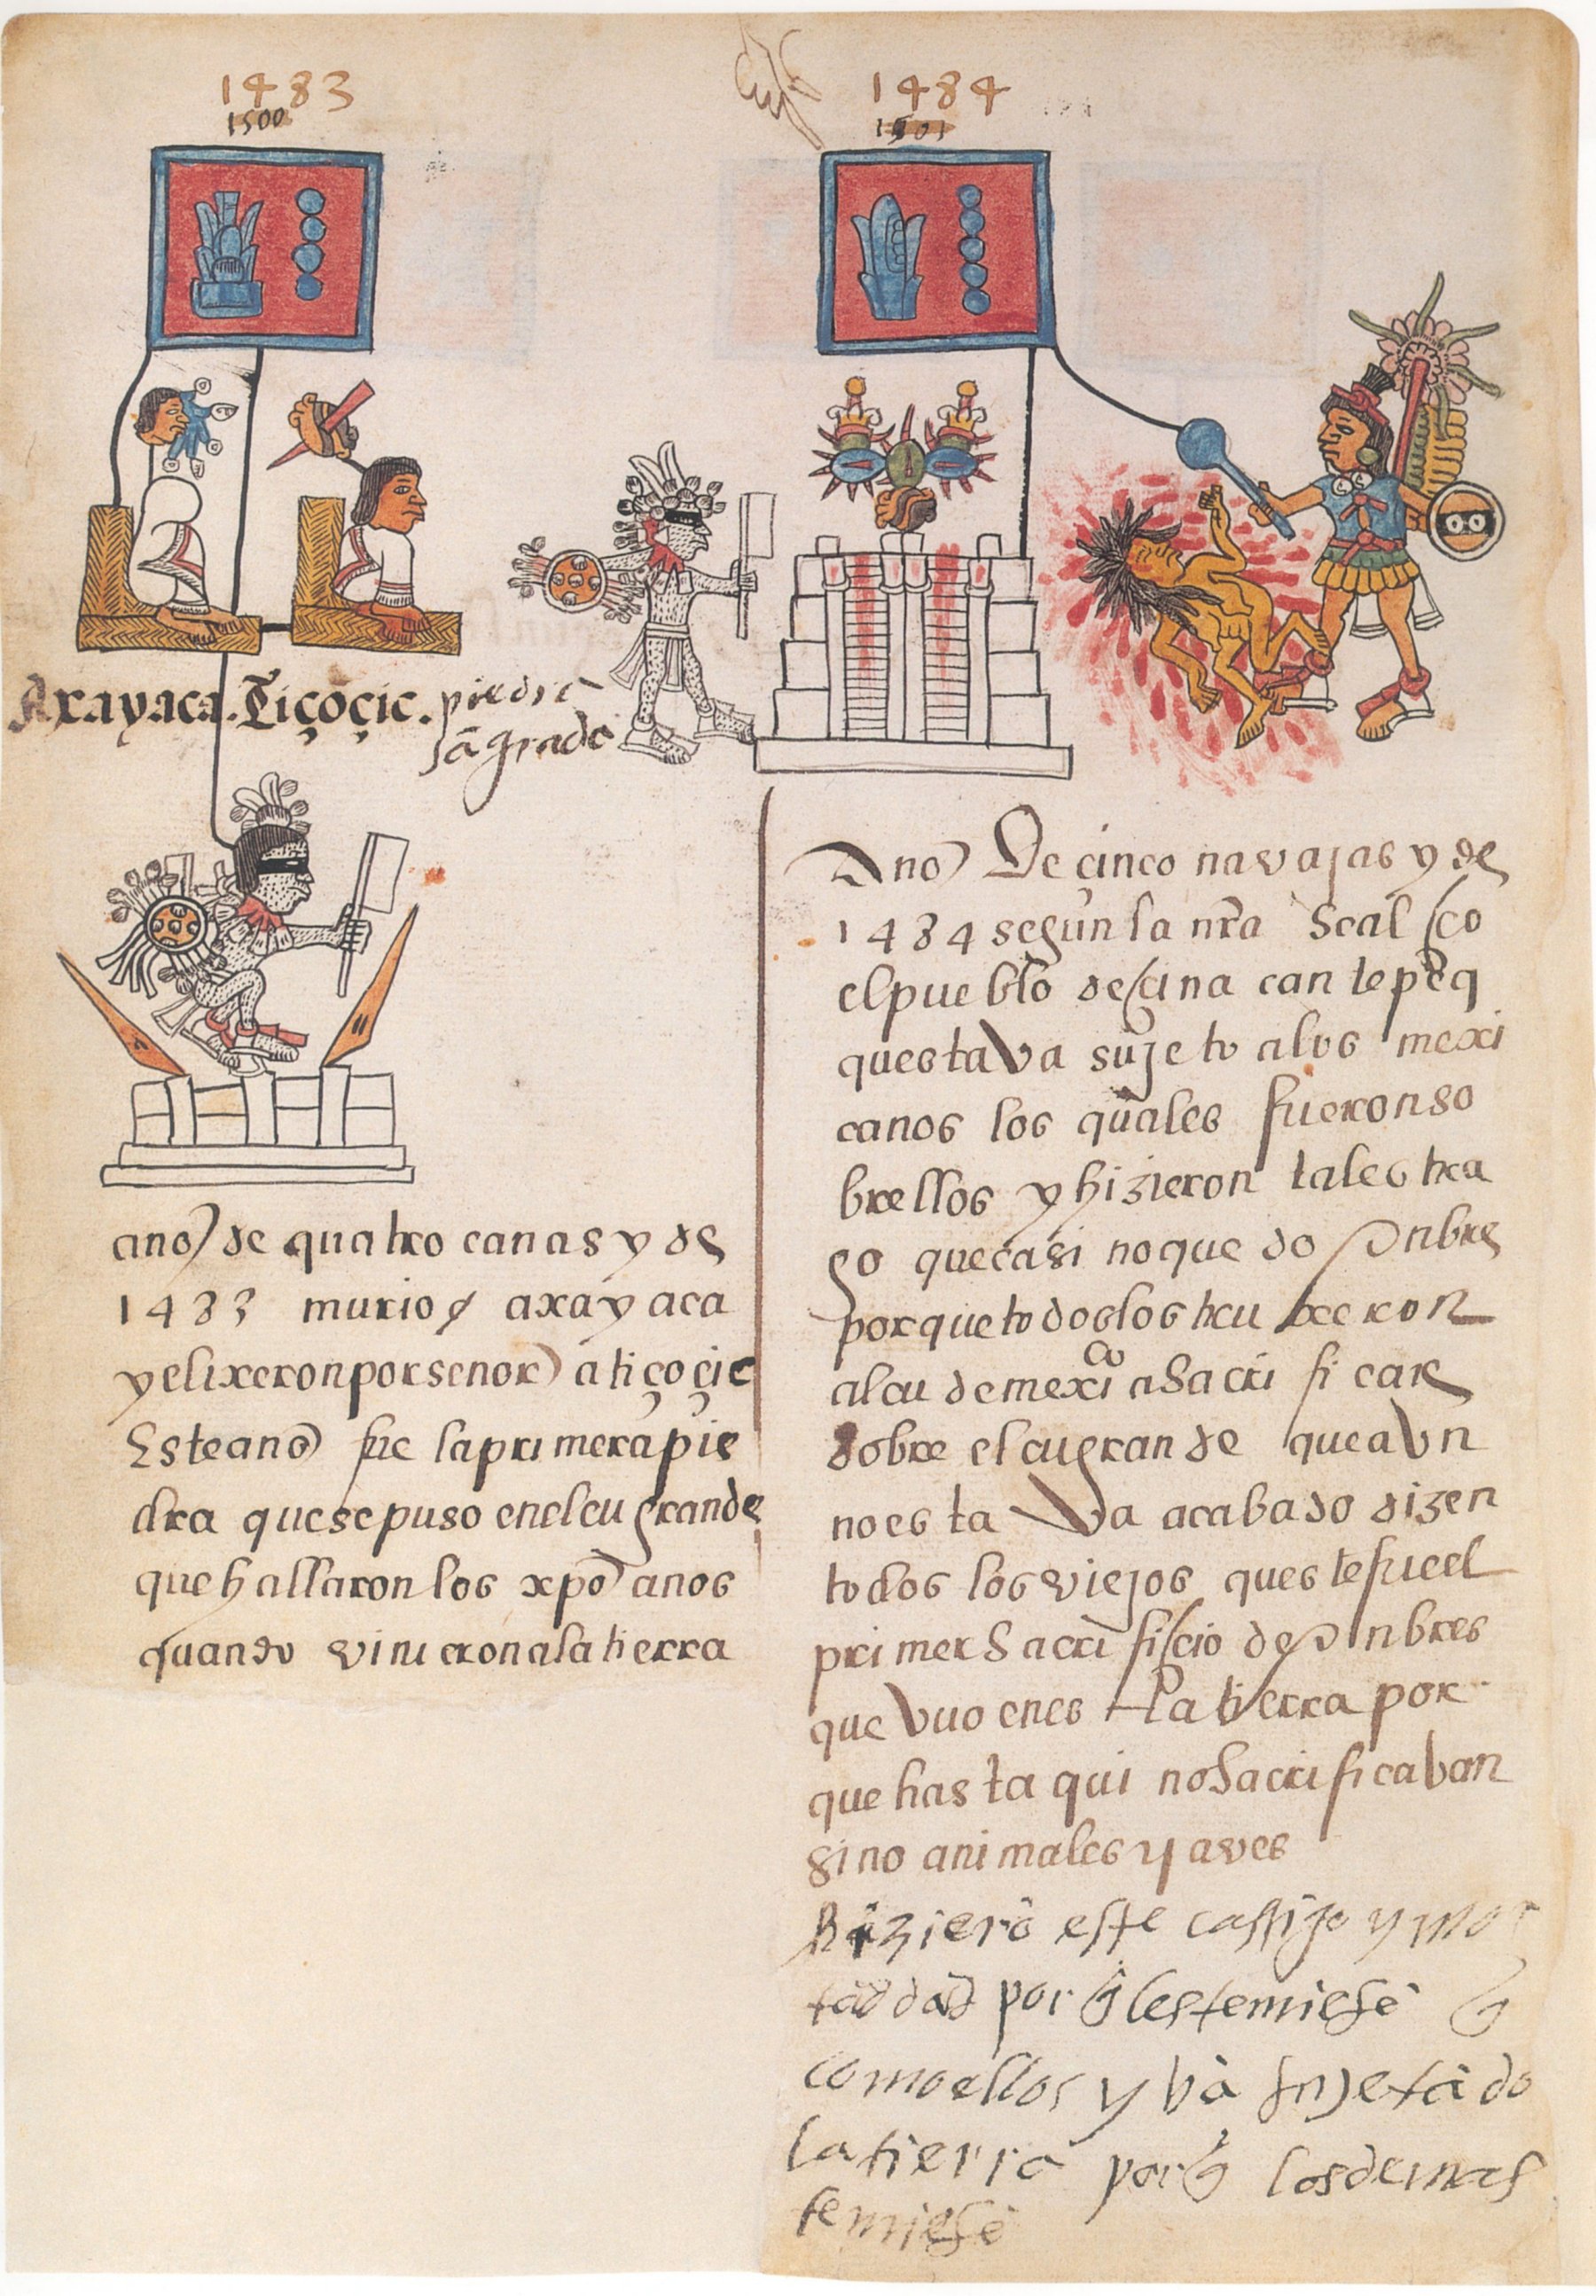 1483
1500
1484
1501
Axayaca. Tiçoçic. piedra
sãgrado
ano de quatro canas y de
1483 murio axayaca
y elixeron por senor a tiçoçic
Este ano fue la primera pie
dra que se puso en el cu grande
que hallaron los xpõ anos
quando vinieron a la tierra
Ano De çinco navajas y de
1484 segun la nr̃a Se alço
el pueblo de çinacantepeq
questava sujeto a los mexi
canos los quales fueron so
brellos y hizieron tal estra
go que casi no quedo onbre
porque todos los truxeron
al cu de mexico a Sacrificar
sobre el cu grande que aun
no estava acabado dizen
todos los viejos queste fue el
primer Sacrifiçio de onbres
que vuo en esta tierra por
que hasta qui no Sacrificavan
sino animales y aves
hizierõ este castigo y mor
tãddad por q̃ les temiesẽ
como ellos yvã sujetãdo
la tierra por q̃ los demas
temiesẽ